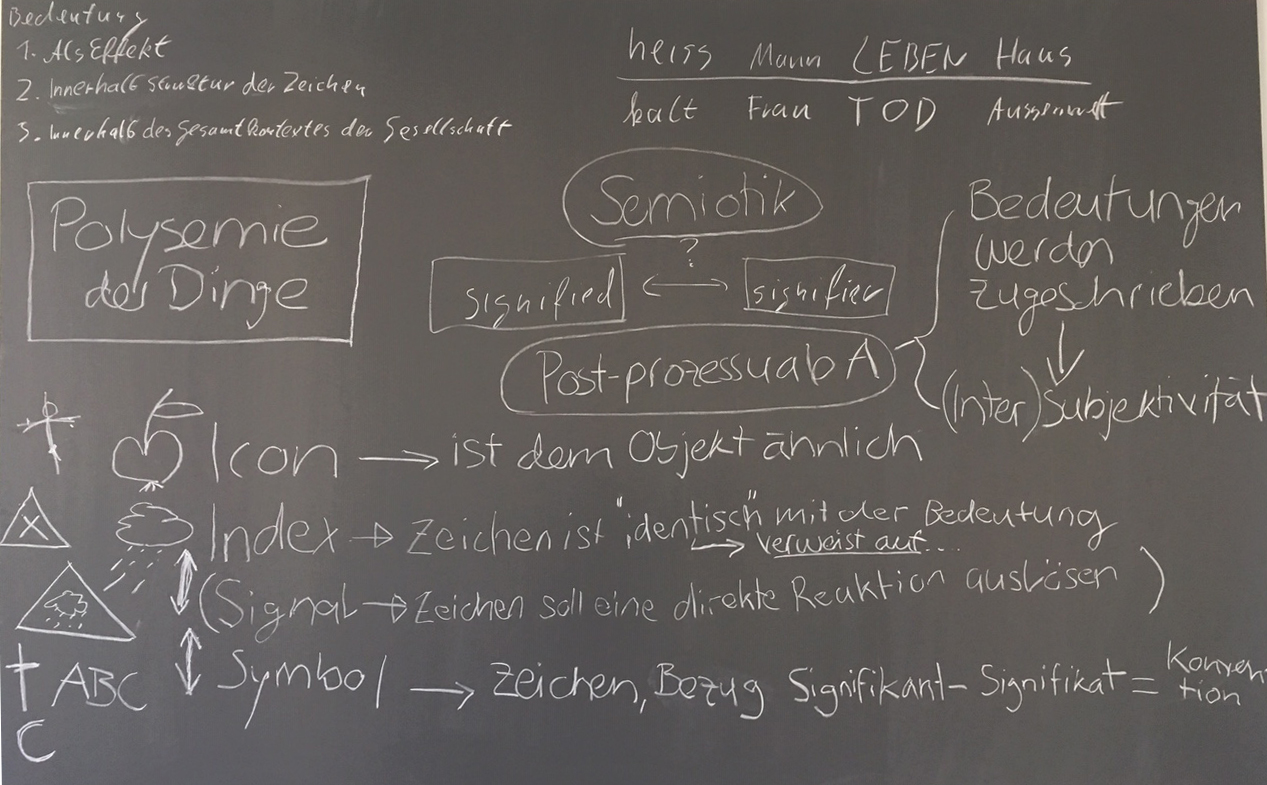 Bedeutung
1. Als Effekt
2. Innerhalb Struktur der Zeichen
3. Innerhalb des Gesamtkontextes der Gesellschaft
heiss Mann LEBEN Haus
kalt Frau TOD Aussenwelt
Polysemie
des Dinge
Semiotik
?
signified ⟷ signifier
Post-prozessuale A
Bedeutungen
werden
zugeschrieben
↓
(Inter)Subjektivität
Icon → ist dem Objekt ähnlich
X
Index → Zeichen ist "identisch" mit der Bedeutung
→ verweist auf....
(Signal → Zeichen soll eine direkte Reaktion auslösen)
† ABC Symbol → Zeichen, Bezug Signifikant - Signifikat = Konven-
tion
C